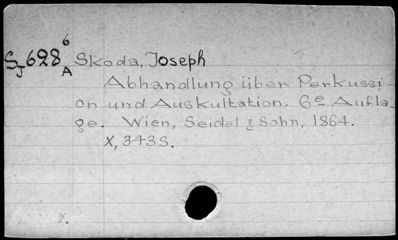 SJ628⁶A Skoda, Joseph
Abhandlung über Perkussi-
on und Auskultation. 6e Aufla-
ge. Wien, Seidel & Sohn, 1864.
X, 343S.